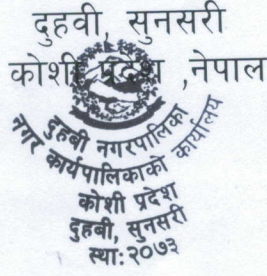 दुहवी, सुनसरी
कोशी प्रदेश ,नेपाल
दुहबी नगरपालिका
नगर कार्यपालिकाको कार्यालय
कोशी प्रदेश
दुहबी, सुनसरी
स्था: २०७३